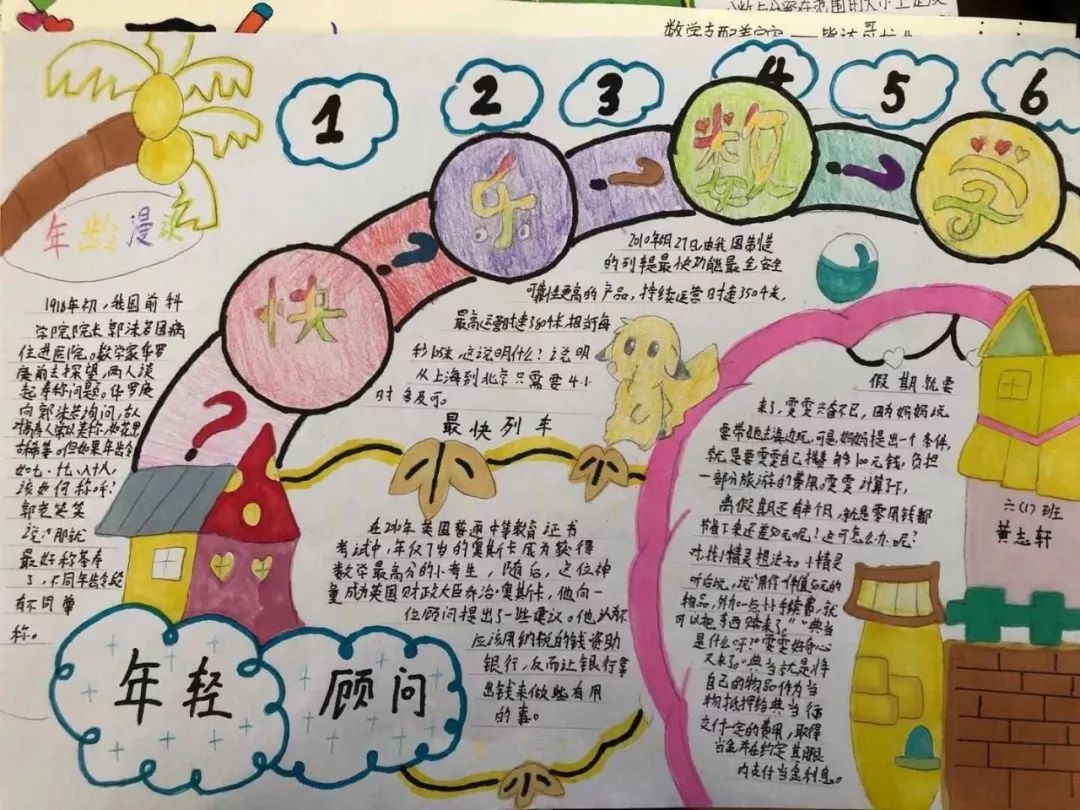 数学
1
2
3
4
5
6
快
乐
数
字
年龄漫谈
1978年初,我国前科
学院院长郭沫若因病
住进医院。数学家华罗
庚前去探望,两人谈
起寿称问题。华罗庚
向郭沫若询问,古人
对高寿人常以美称,如花甲
古稀等。但如果年龄
如七、十七、八十八,
该如何称呼?
郭老笑笑
说:“那就
最好称茶寿
了,不同年龄段
有不同尊
称。
2010年 月27日由我国制造
的列车是最快功能最全安全
可靠性更高的产品,持续运营时速350千米,
最高运营时速380千米,相当每
秒 米,这说明什么?说明
从上海到北京只需要4小
时多及可。
最快列车
在2010年英国普通中等教育证书
考试中,年仅7岁的奥斯卡成为获得
数学最高分的小考生,随后,这位神
童成为英国财政大臣乔治·奥斯卡,他向一
位顾问提出了一些建议。他认为不
应该用纳税的钱资助
银行,反而让银行拿
出钱来做些有用
的事。
年轻
顾问
假期就要
来了,雯雯兴奋不已,因为妈妈说
要带她去海边玩,可是妈妈提出一个条件,
就是要雯雯自己攒够100元钱,负担
一部分旅游的费用。雯雯计算了下,
离假期还有半个月,就是零用钱都
攒下来还差50元呢!这可怎么办呢?
快找小精灵想法子。小精灵
听后说,说“用件价值50元的
物品,外加一点儿手续费,就
可以把东西赎来了。”“典当
是什么呀?”雯雯好奇心
又来了。“典当就是将
自己的物品作为当
物抵押给典当行
交付一定的费用,取得
当金并在约定其限
内支付当金利息。
六(1)班
黄志轩